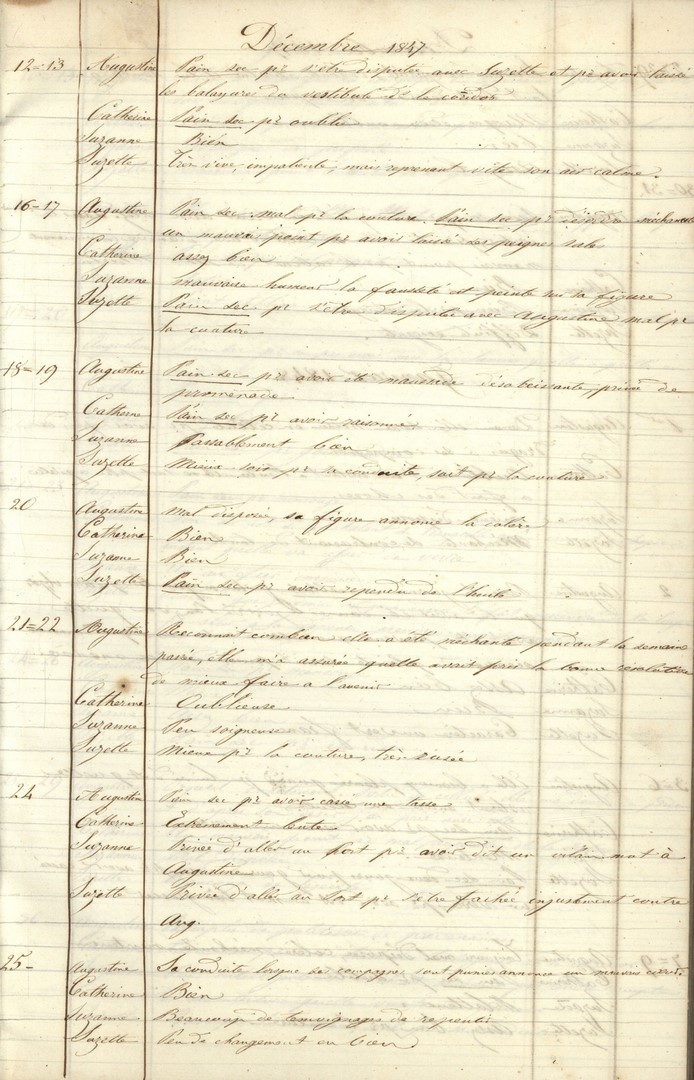 Décembre 1847
12=13 Augustine Pain sec pr s'être disputée avec Suzette et pr avoir laissé
les balayures du vestibule de le coridor
Catherine Pain sec pr oublie
Suzanne Bien
Suzette Très vive, impatiente, mais reprenant vite son air calme.
16=17 Augustine Pain sec mal pr la couture. Pain sec pr méchanceté
un mauvais point pr avoir laissé ses peignes sale
Catherine assez bien
Suzanne mauvaise humeur la fausseté est peinte sur sa figure
Suzette Pain sec pr s'être disputée avec Augustine mal pr
la couture
18=19 Augustine Pain sec pr avoir été mauvaise désobéissante, privée de
promenade
Catherine Pain sec pr avoir raisonné
Suzanne Passablement bien
Suzette Mieux soit pr la conduite, soit pr la couture
20 Augustine Mal disposée, sa figure annonce la colère
Catherine Bien
Suzanne Bien
Suzette Pain sec pr avoir rependu de l'huile
21=22 Augustine Reconnait combien elle a été méchante pendant la semaine
passée, elle m'a assurée quelle avait pris la bonne résolution
de mieux faire a l'avenir
Catherine Oublieuse
Suzanne Peu soigneuse
Suzette Mieux pr la couture, très rusée
24 Augustine Pain sec pr avoir cassé une tasse
Catherine Extrêmement lente
Suzanne Privée d'aller au Sort pr avoir dit un vilain mot à
Augustine
Suzette Privée d'aller au Sort pr s'etre fachée injustement contre
Aug.
25- Augustine Sa conduite lorsque ses compagnes sont punies annonce un mauvais cœur.
Catherine Bien
Suzanne Beaucoup de temoignages de repentir
Suzette Peu de changement en bien